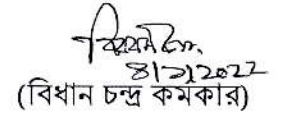 8/2/2022
(বিধান চন্দ্র কর্মকার)